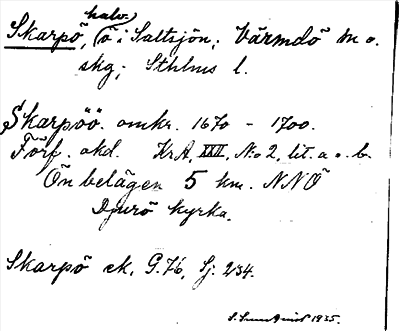 Skarpö, halvö i Saltsjön; Värmdö m o.
skg; Sthlms l.
Skarpöö. omkr. 1670 - 1700.
Förf. okd. KrA, XXII, No 2, lit. a o. b.
Ön belägen 5 km. NNÖ
Djurö kyrka.
Skarpö ek. G.76, Sj. 234.
S. Sundqvist 1935.